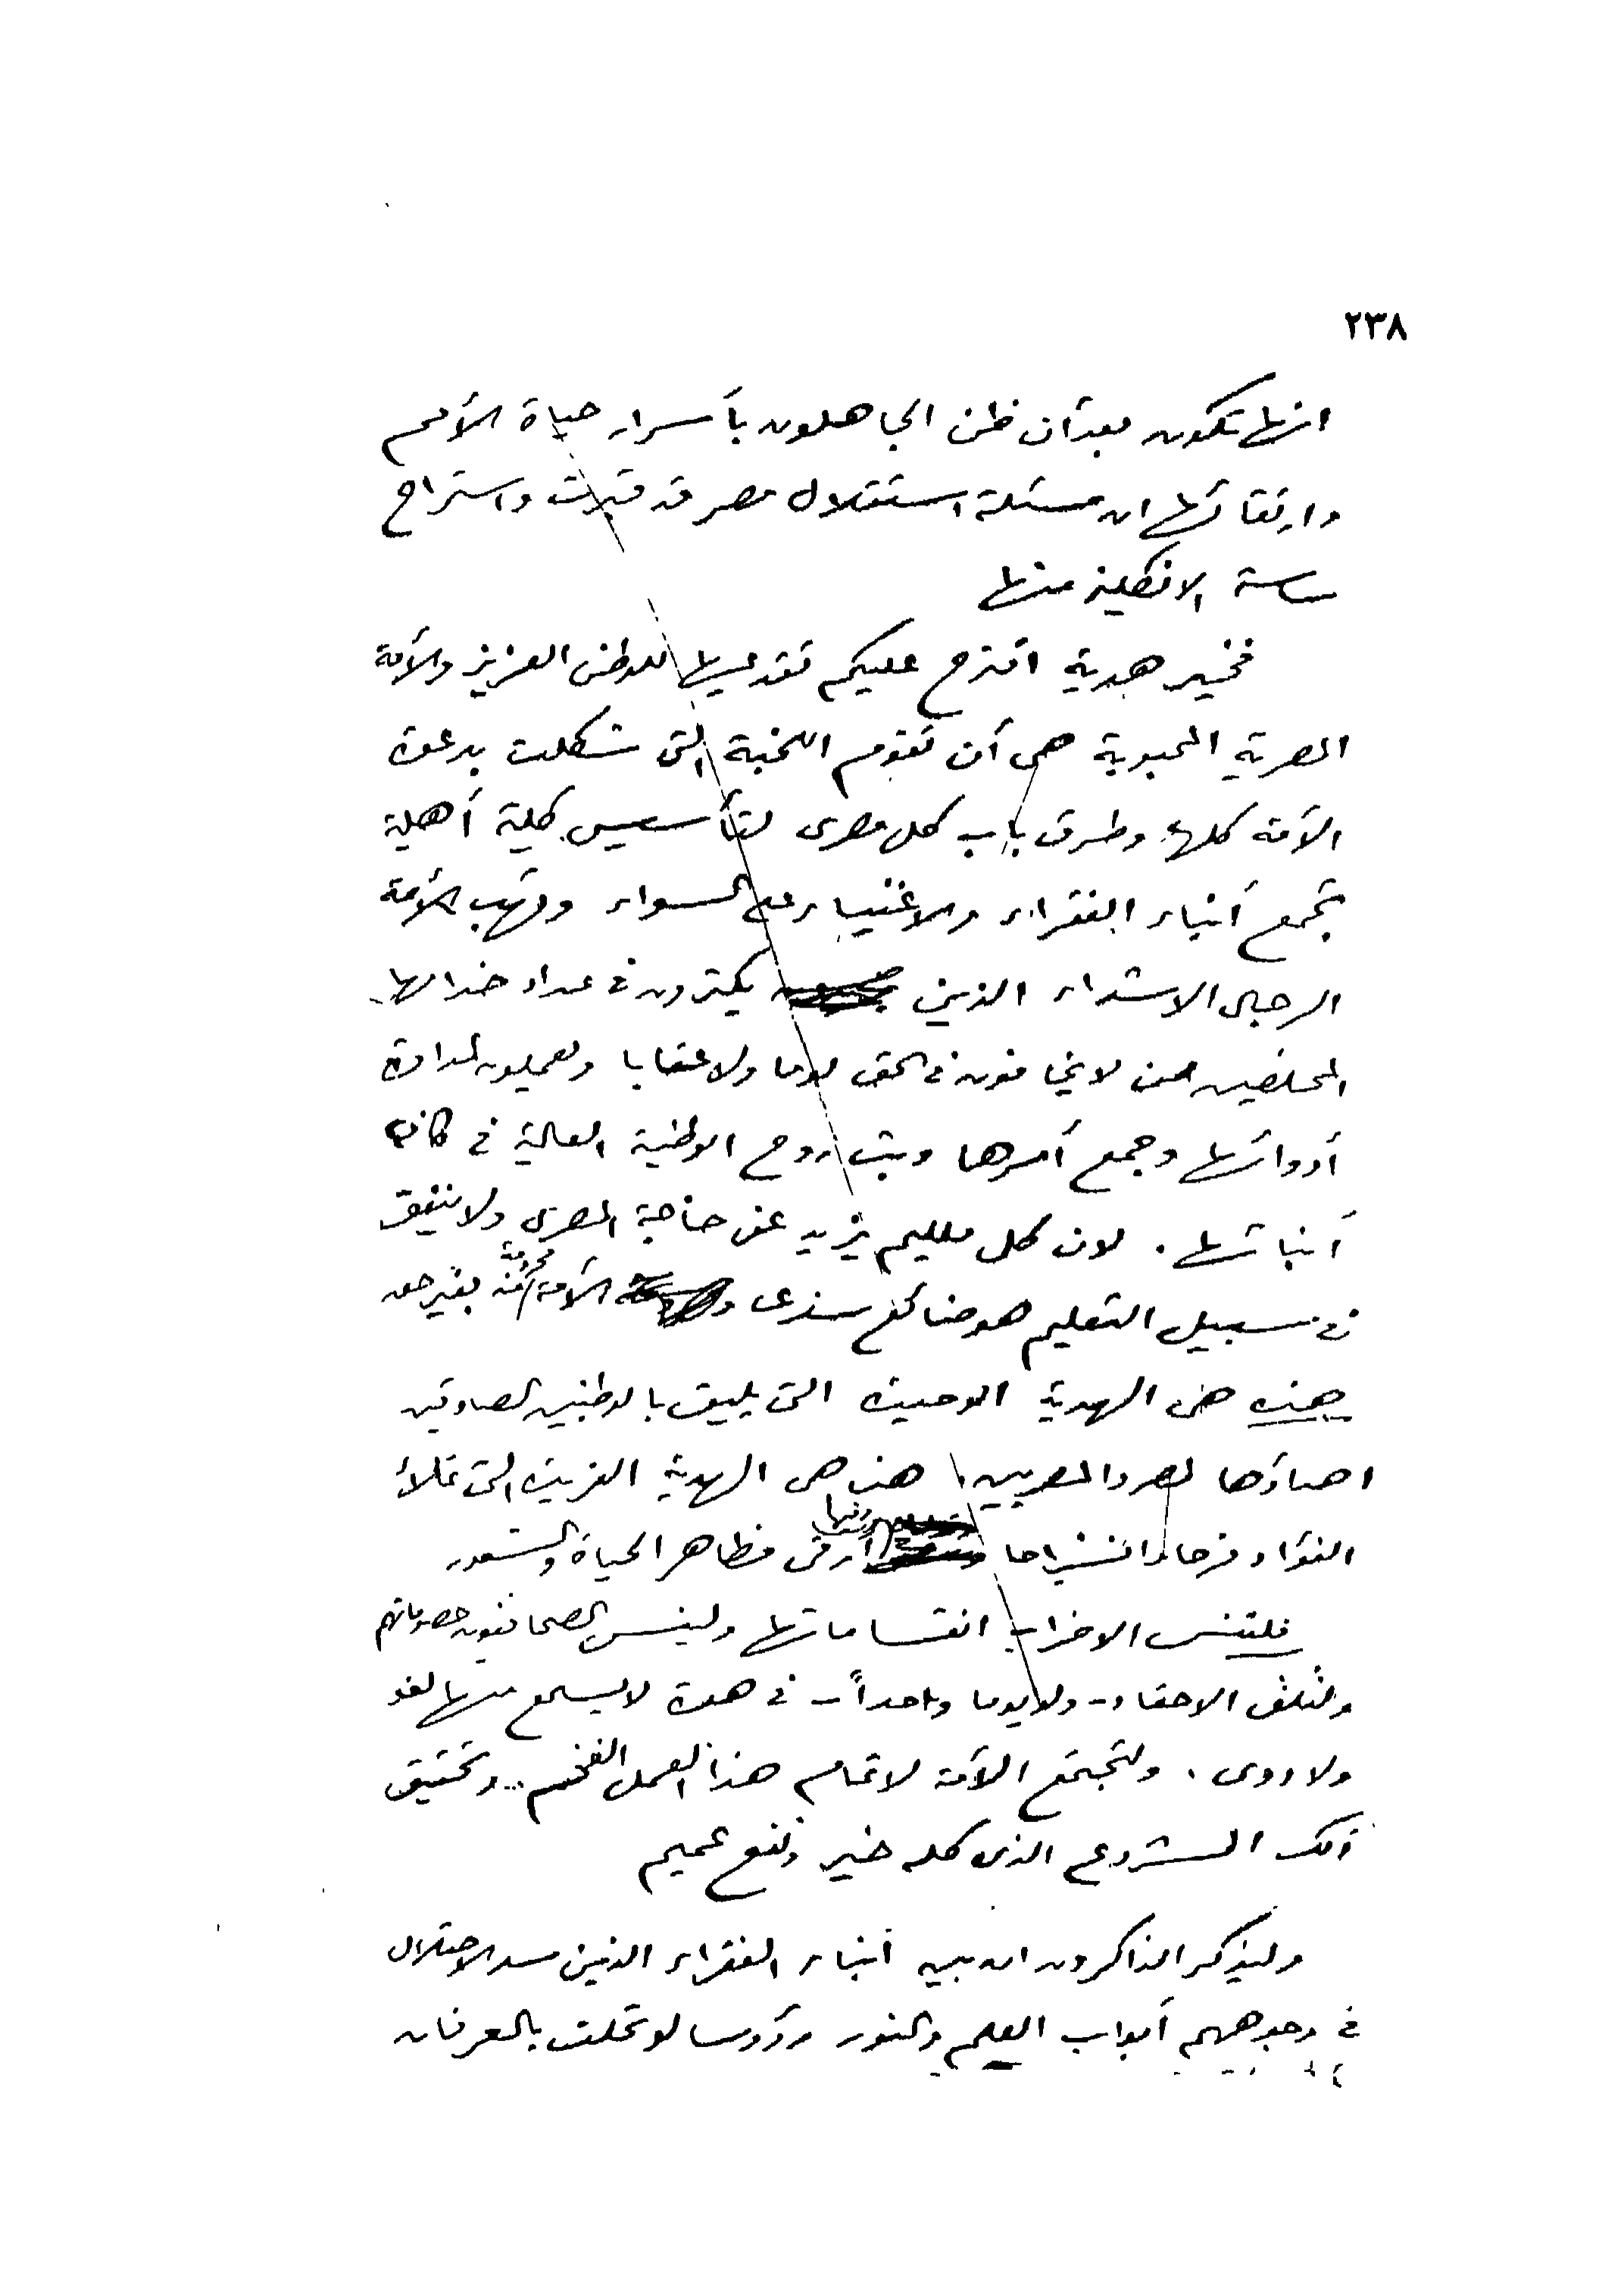 ٢٣٨
انها تكون بعد أن ظن الجاهلون بأسرار حياة الأمم
وارتقائها ان مسئلة استقلال مصر قد قبرت واستراح
ساسة الانكليز منها
فخير هدية اقترح عليكم تقديمها للوطن العزيز والأمة
المصرية المحبوبة هى أن تقوم اللجنة التى تشكلت بدعوة
الأمة كلها وطرق باب كل مصرى لتأسيس كلية أهلية
تجمع أبناء الفقراء والاغنياء على السواء وتهب الأمة
الرجال الاشداء الذين يكثرون فى عداد خدامها
المخلصين ممن لا يخافون فى الحق لوما ولا عقابا ويعملون لمداواة
أدوائها وجمع أمرها وبث روح الوطنية العالية فى كافة
أبنائها . لان كل مليم يزيد عن حاجة المصرى ولا ينفق
فى سبيل التعليم هو ضائع سدى والأمة محرومة منه بغير حق
هذه هى الهدية الوحيدة التى يليق بالوطنيين الصادقين
اهداؤها لمصر والمصريين . هذه هى الهدية الفريدة التى تملأ
الفؤاد فرحا وانشراحا أرقى مظاهر الحياة والشعور
فلتنس الاحزاب انقساماتها ولينس الصحافيون خصوماتهم
ولتلق الاحقاد - ولو يوما واحداً - فى هوة لا يسمع منها لغو
ولا دوى . ولتجتمع الأمة لاتمام هذا العمل الفخم .. وتحقيق
ذلك المشروع الذى كله خير ونفع عميم
وليذكر الذاكرون ان بين أبناء الفقراء الذين سد الاحتلال
فى وجوههم أبواب العلم والنور رؤوسا لو تحلت بالعرفان